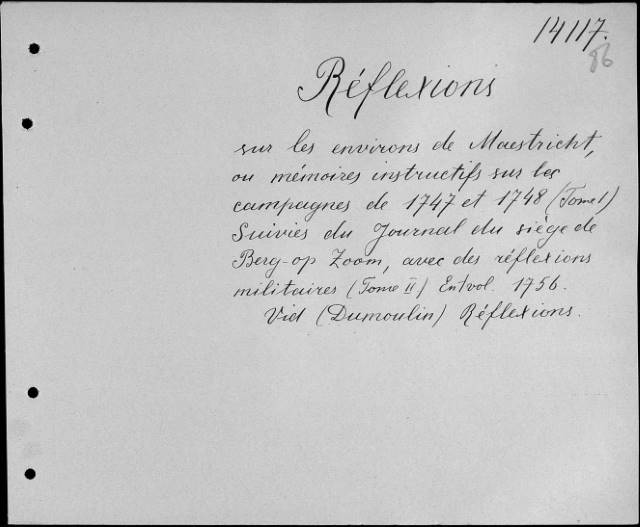 14117.
86
Réflexions
sur les environs de Maestricht,
ou mémoires instructifs sur les
campagnes de 1747 et 1748 (Tome I)
Suivies du Journal du siège de
Berg-op Zoom, avec des réflexions
militaires (Tome II) En 1 vol. 1756.
Vid (Dumoulin) Réflexions.